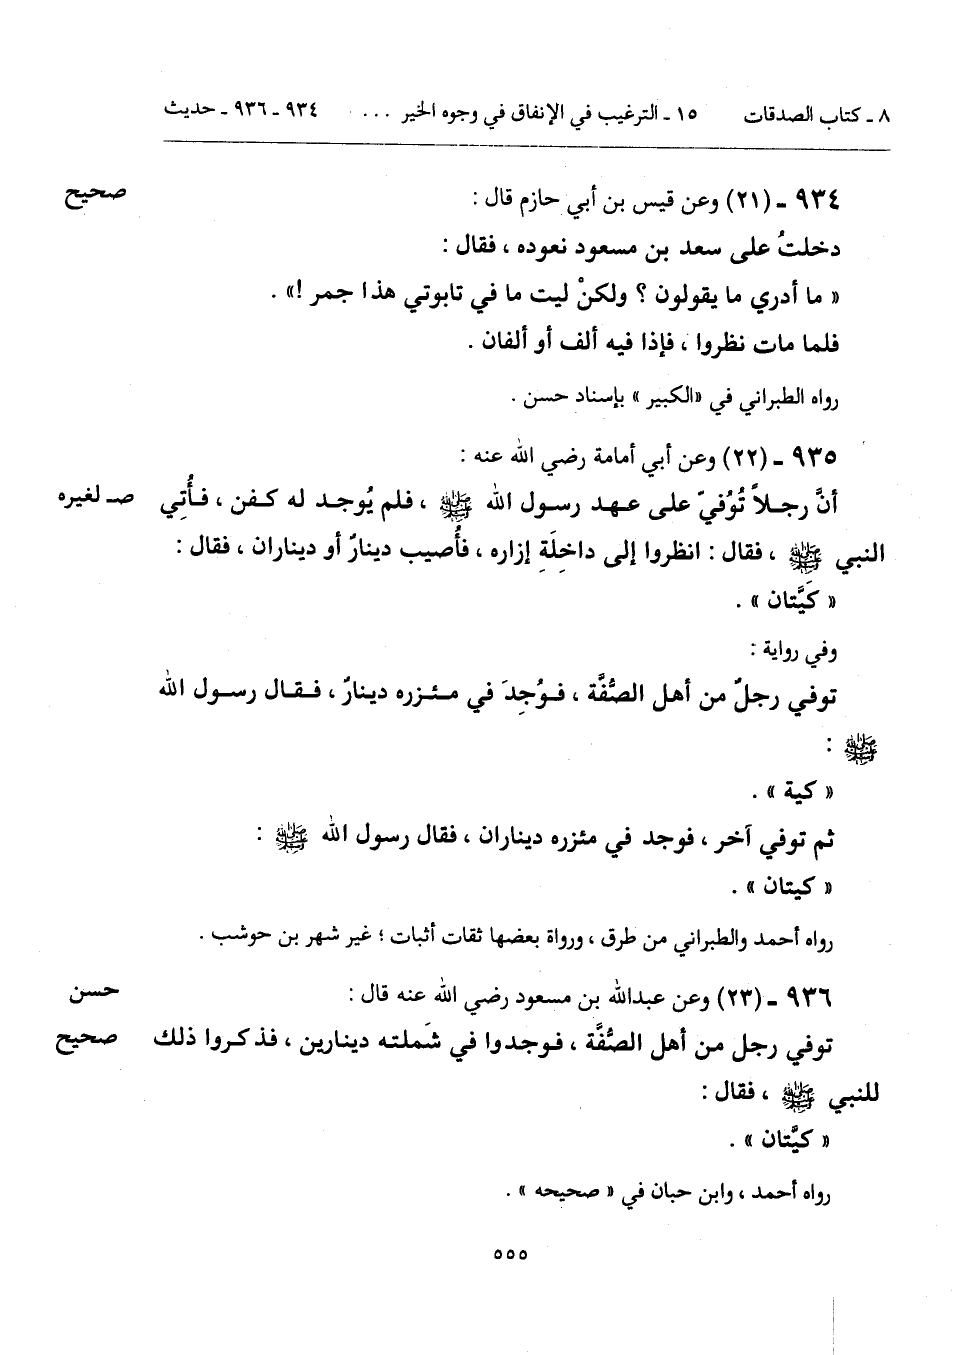 ٨ ـ كتاب الصدقات ١٥ ـ الترغيب في الإنفاق في وجوه الخير . . . . ٩٣٤ ـ ٩٣٦ ـ حديث
٩٣٤ ـ (٢١) وعن قيس بن أبي حازم قال : صحيح
دخلتُ على سعد بن مسعود نعوده ، فقال :
« ما أدري ما يقولون ؟ ولكنْ ليت ما في تابوتي هذا جمر !» .
فلما مات نظروا ، فإذا فيه ألف أو ألفان .
رواه الطبراني في «الكبير » بإسناد حسن .
٩٣٥ ـ (٢٢) وعن أبي أمامة رضي الله عنه :
أنَّ رجـلاً تُوُفيّ على عـهد رسـول الله ﷺ ، فلم يُوجـد له كـفن ، فـأُتِي صـ لغيره
النبي ﷺ ، فقال : انظروا إلى داخِلَةِ إزاره ، فأُصيب دينارٌ أو ديناران ، فقال :
« كَيَّتان » .
وفي رواية :
توفي رجلٌ من أهل الصُّفَّة ، فـوُجِدَ في مـئـزره دينارٌ ، فـقـال رسـول الله
ﷺ :
« كية » .
ثم توفي آخر ، فوجد في مئزره ديناران ، فقال رسول الله ﷺ :
« كيتان » .
رواه أحمد والطبراني من طرق ، ورواة بعضها ثقات أثبات ؛ غير شهر بن حوشب .
٩٣٦ ـ (٢٣) وعن عبدالله بن مسعود رضي الله عنه قال : حسن
توفي رجل من أهل الصُّفَّة ، فـوجدوا في شَملته دينارين ، فذكروا ذلك صحيح
للنبي ﷺ ، فقال :
« كيَّتان » .
رواه أحمد ، وابن حبان في « صحيحه » .
٥٥٥